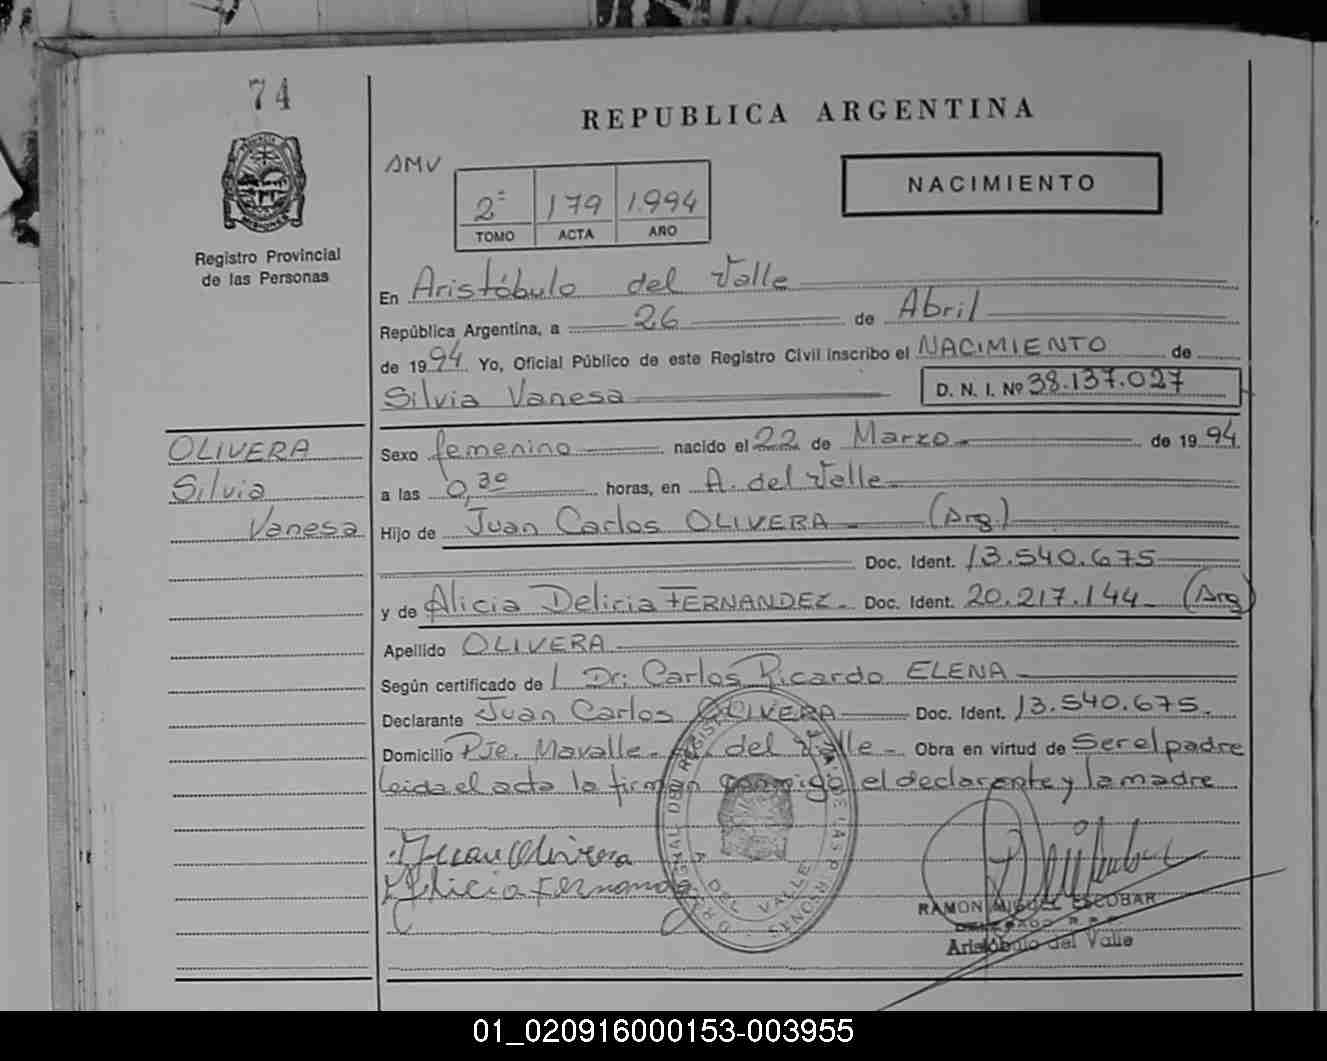 74
REPUBLICA ARGENTINA
AMV
2º 179 1.994
TOMO ACTA AÑO
NACIMIENTO
Registro Provincial
de las Personas
En Aristóbulo del Valle
República Argentina, a 26 de Abril
de 1994 Yo, Oficial Público de este Registro Civil inscribo el NACIMIENTO de
Silvia Vanesa D. N. I. Nº 38.137.027
OLIVERA
Silvia
Vanesa
Sexo femenino nacido el 22 de Marzo de 1994
a las 0,30 horas, en A. del Valle
Hijo de Juan Carlos OLIVERA (Arg)
Doc. Ident. 13.540.675
y de Alicia Delicia FERNANDEZ Doc. Ident. 20.217.144 (Arg)
Apellido OLIVERA
Según certificado de Dr: Carlos Ricardo ELENA
Declarante Juan Carlos OLIVERA Doc. Ident. 13.540.675.
Domicilio Pje. Mavalle - A. del Valle - Obra en virtud de Ser el padre
Leida el acta la firman conmigo el declarante y la madre
Juan Olivera
Alicia Fernandez
A DEL VALLE
RAMON MIGUEL ESCOBAR
Aristóbulo del Valle
01_020916000153-003955